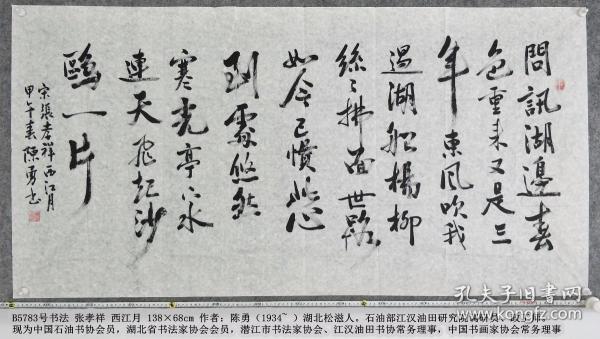 問訊湖邊春
色重来又是三
年東風吹我
過湖船楊柳
絲々拂面世路
如今已慣此心
到處悠然
寒光亭下水
連天飛起沙
鷗一片
宋張孝祥西江月
甲午春陳勇书
孔夫子旧书网
B5783号书法 张孝祥 西江月 138×68cm 作者：陈勇（1934~ ）湖北松滋人。石油部江汉油田研究院调研员、
现为中国石油书协会员，湖北省书法家协会会员，潜江市书法家协会、江汉油田书协常务理事，中国书画家协会常务理事